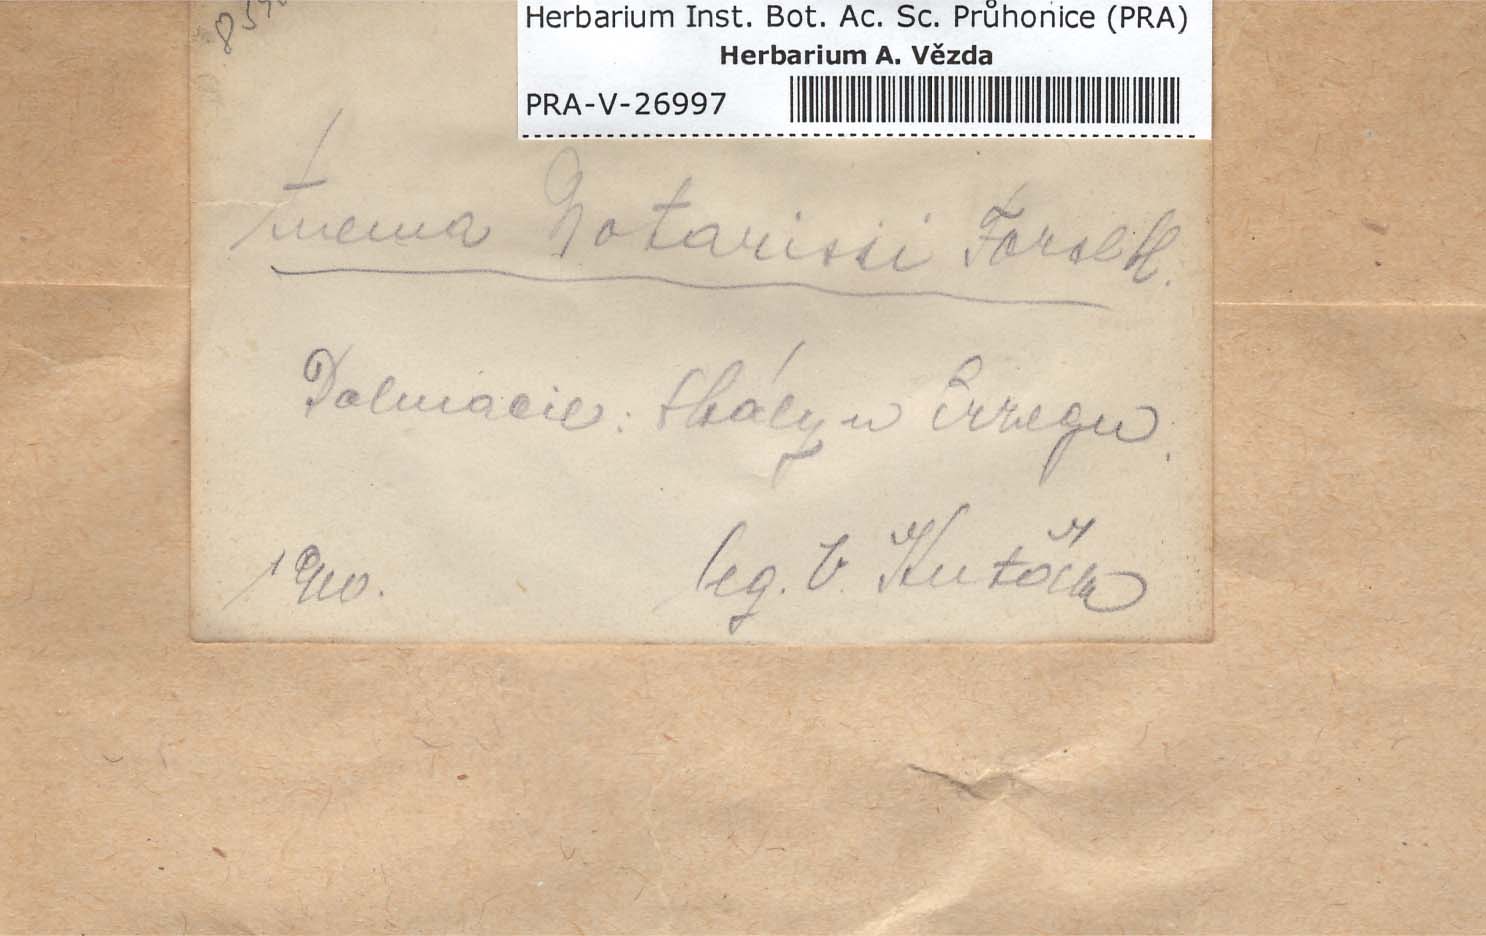 Herbarium Inst. Bot. Ac. Sc. Průhonice (PRA)
Herbarium A. Vězda
PRA-V-26997
Notarisii Forsell.
Dalmácie: skály u Erzegu.
1910. leg. V. Kuťák